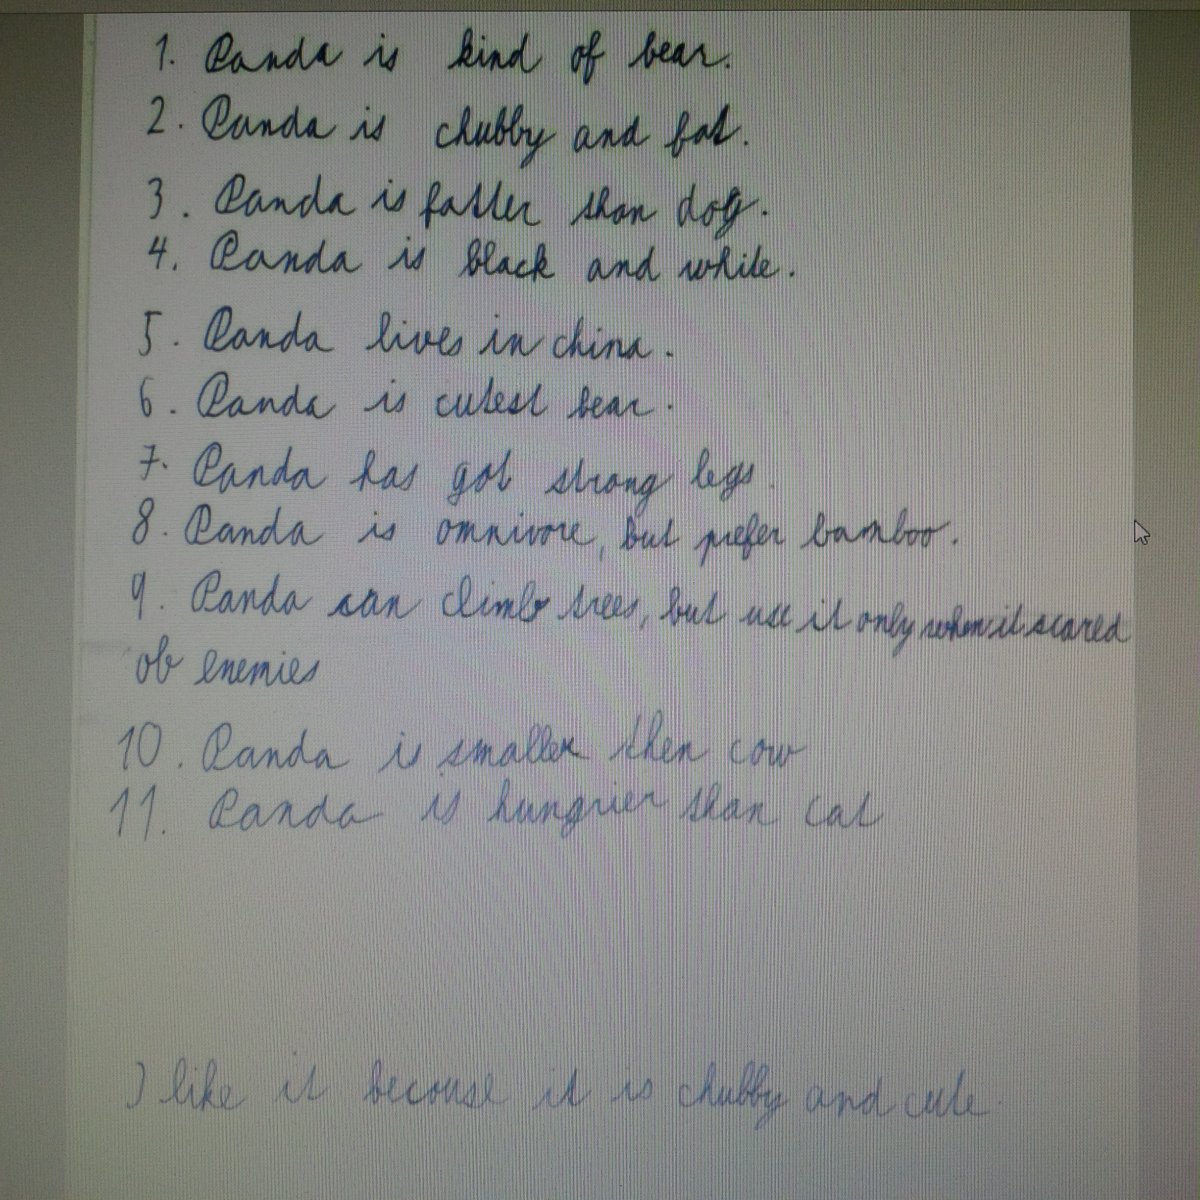 1. Panda is kind of bear.
2. Panda is chubby and fat.
3. Panda is fatter than dog.
4. Panda is black and white.
5. Panda lives in china.
6. Panda is cutest bear.
7. Panda has got strong legs.
8. Panda is omnivore, but prefer bamboo.
9. Panda can climb trees, but use it only when it scared
of enemies
10. Panda is smaller then cow
11. Panda is hungrier than cat
I like it becouse it is chubby and cute.